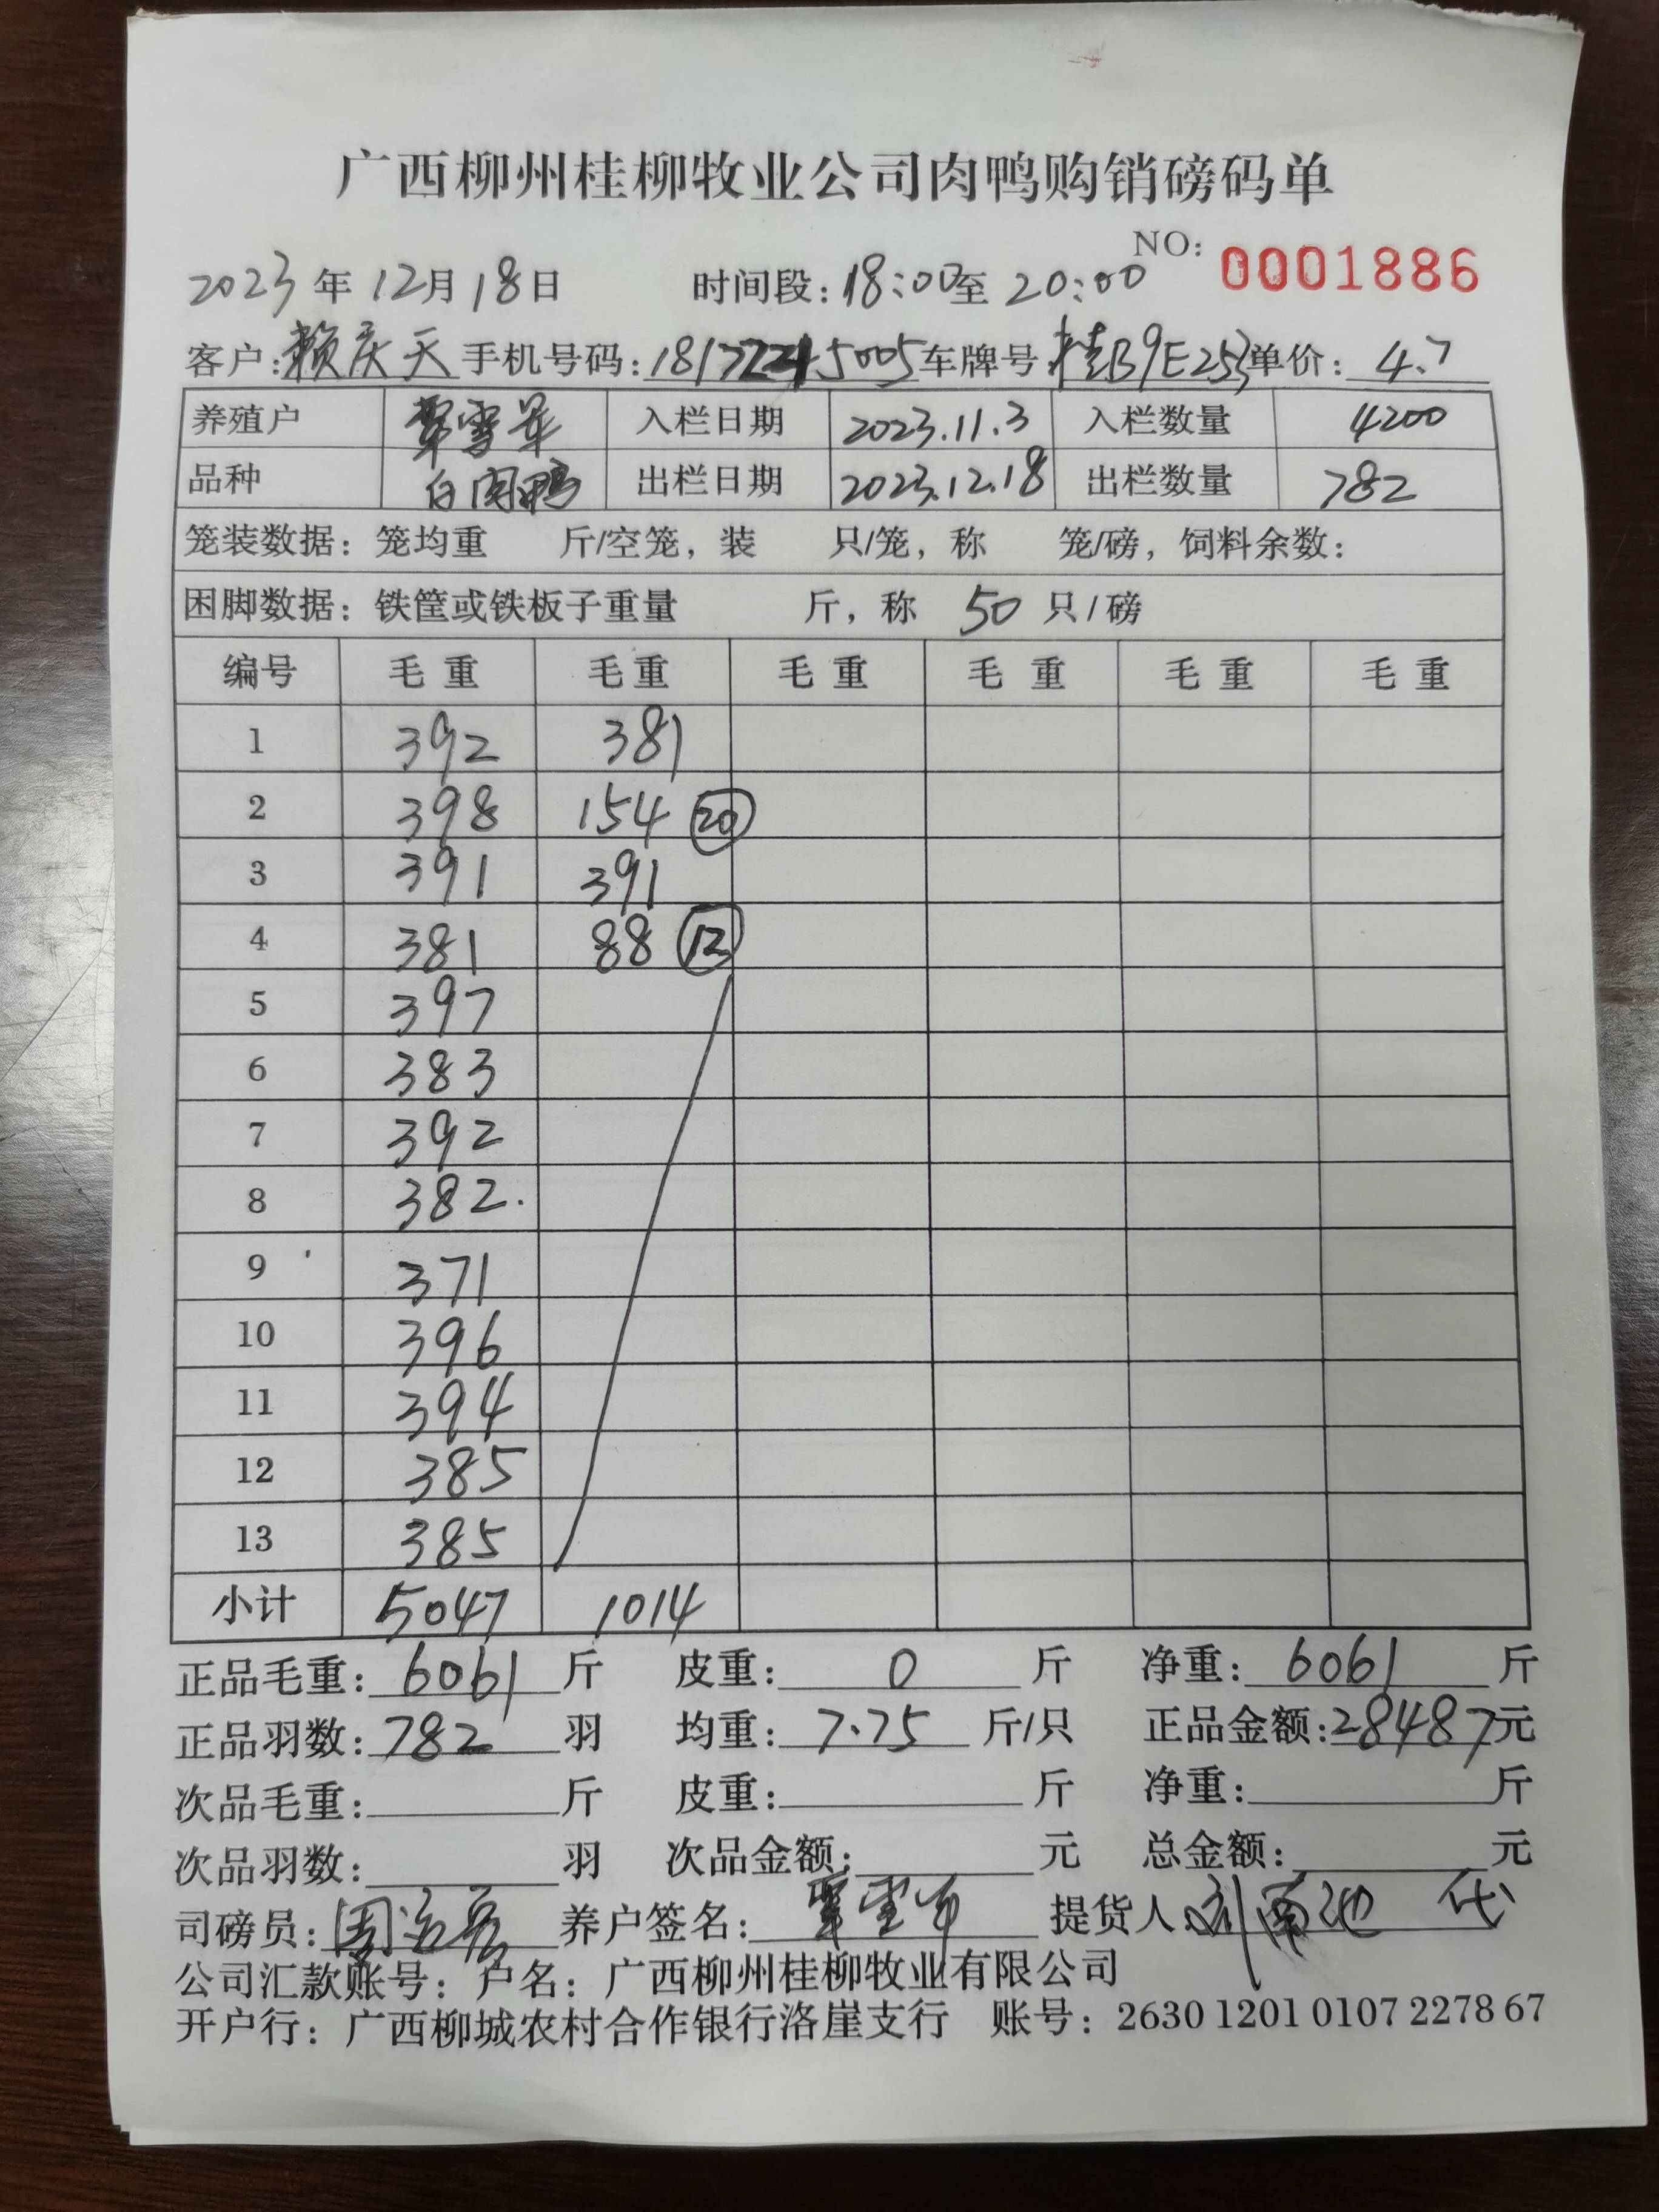 广西柳州桂柳牧业公司肉鸭购销磅码单
NO: 0001886
2023年12月18日 时间段:18:00至20:00
客户:赖庆天 手机号码:18172245005 车牌号:桂B9E253 单价:4.7
养殖户 覃雪军 入栏日期 2023.11.3 入栏数量 4200
品种 白肉鸭 出栏日期 2023.12.18 出栏数量 782
笼装数据:笼均重 斤/空笼,装 只/笼,称 笼/磅,饲料余数:
困脚数据:铁筐或铁板子重量 斤,称 50 只/磅
编号 毛重 毛重 毛重 毛重 毛重 毛重
1 392 381
2 398 154 20
3 391 391
4 381 88 12
5 397
6 383
7 392
8 382.
9 371
10 396
11 394
12 385
13 385
小计 5047 1014
正品毛重:6061斤 皮重:0斤 净重:6061斤
正品羽数:782羽 均重:7.75斤/只 正品金额:28487元
次品毛重: 斤 皮重: 斤 净重: 斤
次品羽数: 羽 次品金额: 元 总金额: 元
司磅员: 养户签名:覃雪军 提货人: 代
公司汇款账号:户名:广西柳州桂柳牧业有限公司
开户行:广西柳城农村合作银行洛崖支行 账号:2630 1201 0107 2278 67